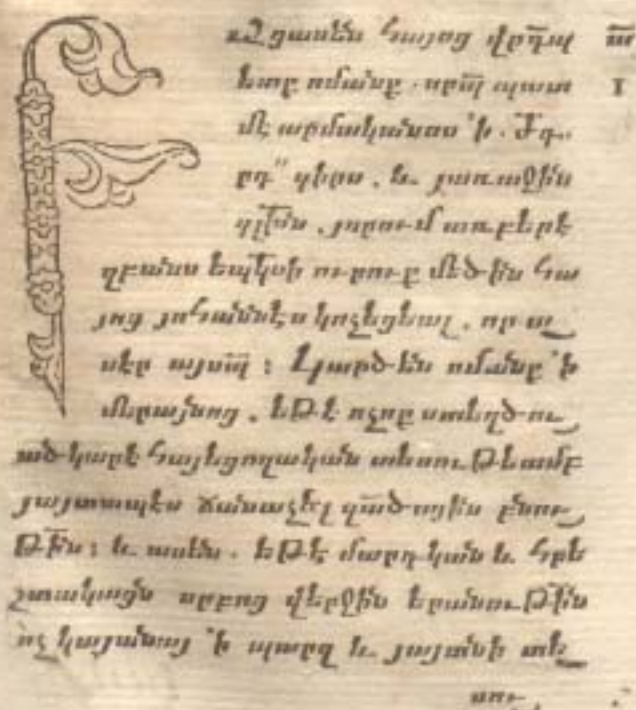 ՅԱԶցասէն հայոց վրդպ
ետք ոմանք. որպ պատ
մէ արմականաս 'ի. Գգ.
րդ" գիրս. և յառաջին
գլխն. յորում առբերէ
զբանս եպկսի ուրուք մեծին հա
յոց յոհաննէս կոչեցեալ. որ ա
սէր այսպ: Կարծեն ոմանք 'ի
մերայնոց. եթէ ոչոք ստեղծու
ած կարէ հայեցողական տեսութեամբ
յայտապէս ճանաչել զած ոյին բնու
թին: և ասեն. եթէ մարդկան և հրե
շտակացն սրբոց վերջին երանութին
ոչ կայանայ 'ի պարզ և յայտնի տե
սու